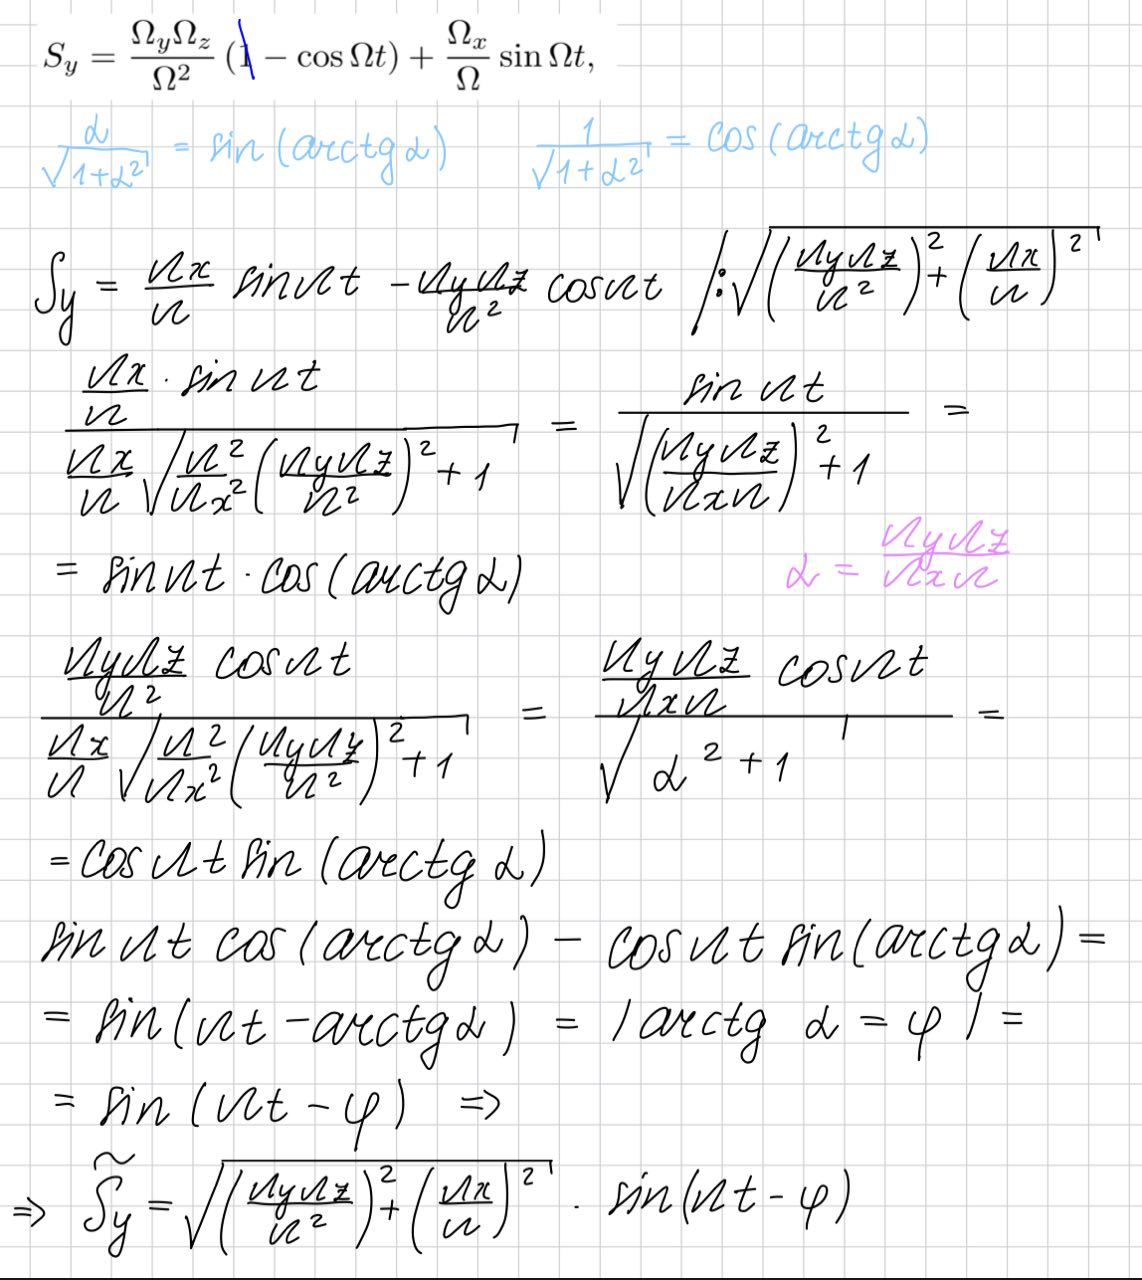 S_y = \frac{Ω_yΩ_z}{Ω^2} (1 − cos Ωt) + \frac{Ω_x}{Ω} sin Ωt,
\frac{α}{\sqrt{1+α^2}} = sin (arctg α) \frac{1}{\sqrt{1+α^2}} = cos (arctg α)
S_y = \frac{Ωx}{Ω} sin Ωt − \frac{ΩyΩz}{Ω^2} cos Ωt /: \sqrt{(\frac{ΩyΩz}{Ω^2})^2 + (\frac{Ωx}{Ω})^2}
\frac{\frac{Ωx}{Ω} · sin Ωt}{\frac{Ωx}{Ω} \sqrt{\frac{Ω^2}{Ωx^2} (\frac{ΩyΩz}{Ω^2})^2 + 1}} = \frac{sin Ωt}{\sqrt{(\frac{ΩyΩz}{ΩxΩ})^2 + 1}} =
= sin Ωt · cos (arctg α) α = \frac{ΩyΩz}{ΩxΩ}
\frac{\frac{ΩyΩz}{Ω^2} cos Ωt}{\frac{Ωx}{Ω} \sqrt{\frac{Ω^2}{Ωx^2} (\frac{ΩyΩz}{Ω^2})^2 + 1}} = \frac{\frac{ΩyΩz}{ΩxΩ} cos Ωt}{\sqrt{α^2 + 1}} =
= cos Ωt sin (arctg α)
sin Ωt cos (arctg α) − cos Ωt sin (arctg α) =
= sin (Ωt − arctg α) = | arctg α = φ | =
= sin (Ωt − φ) ⇒
⇒ \tilde{S}_y = \sqrt{(\frac{ΩyΩz}{Ω^2})^2 + (\frac{Ωx}{Ω})^2} · sin (Ωt − φ)